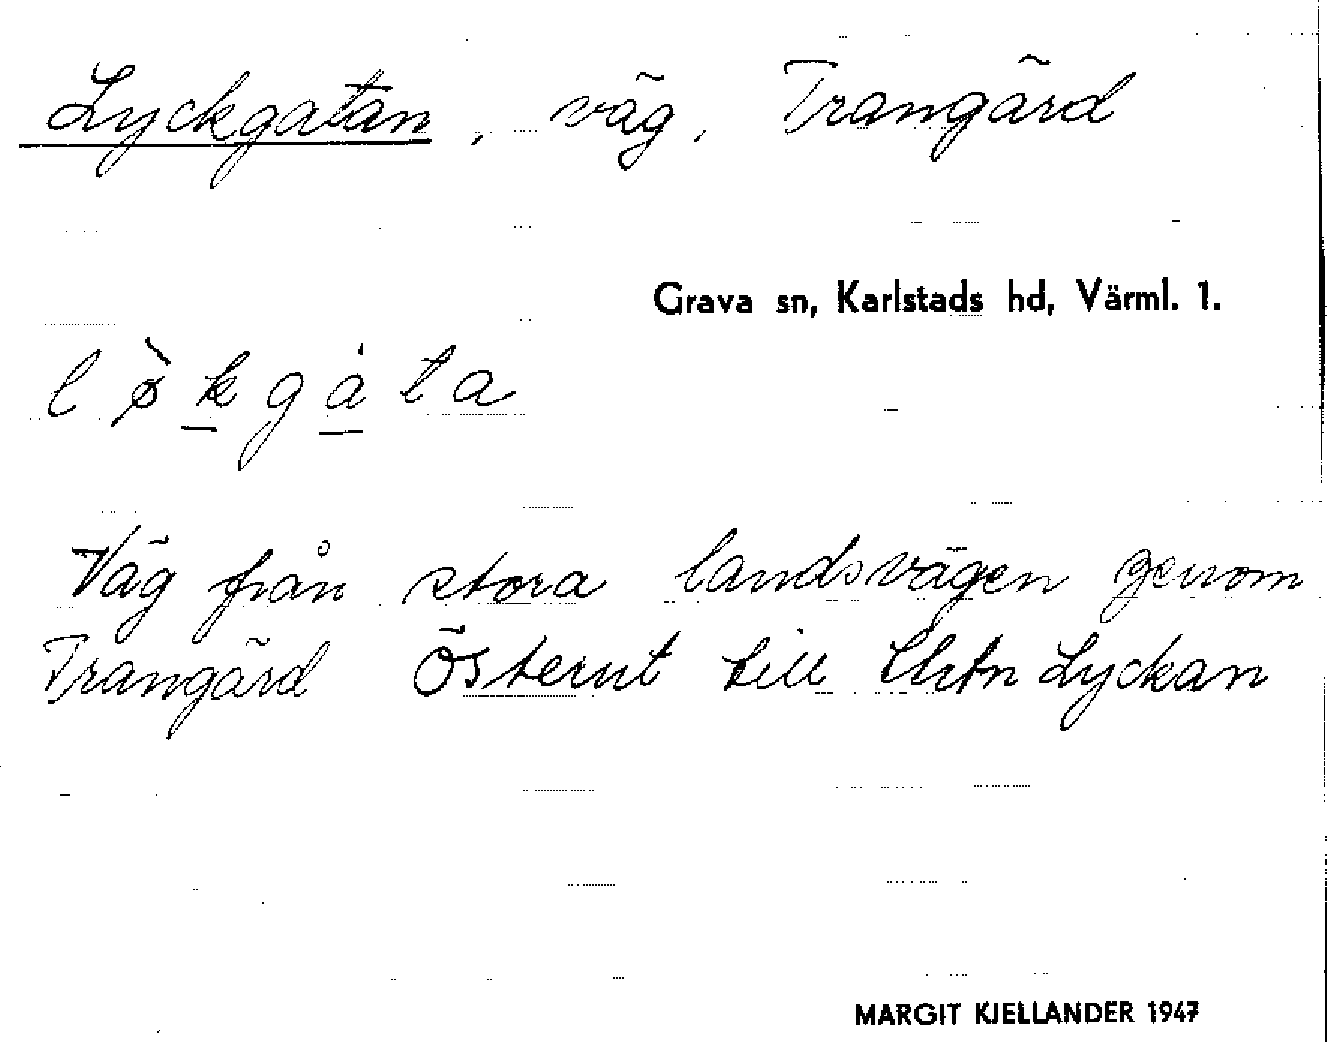 Lyckgatan, väg, Trangärd
Grava sn, Karlstads hd, Värml. 1.
l ø̀ k g a̍ t a
Väg från stora landsvägen genom
Trangärd Österut till Lyckan
MARGIT KJELLANDER 1947